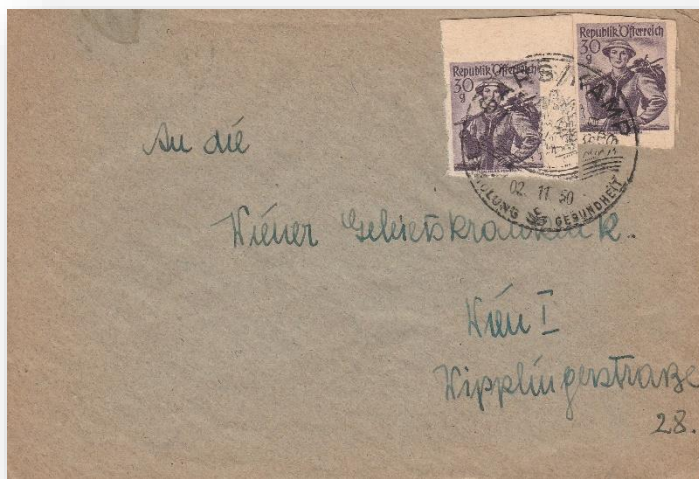 Republik Österreich
30
g
Republik Österreich
30
g
KAMP
02. 11 50
GESUNDHEIT
An die
Wiener Gebietskrankenk.
Wien I
Wipplingerstraße
28.